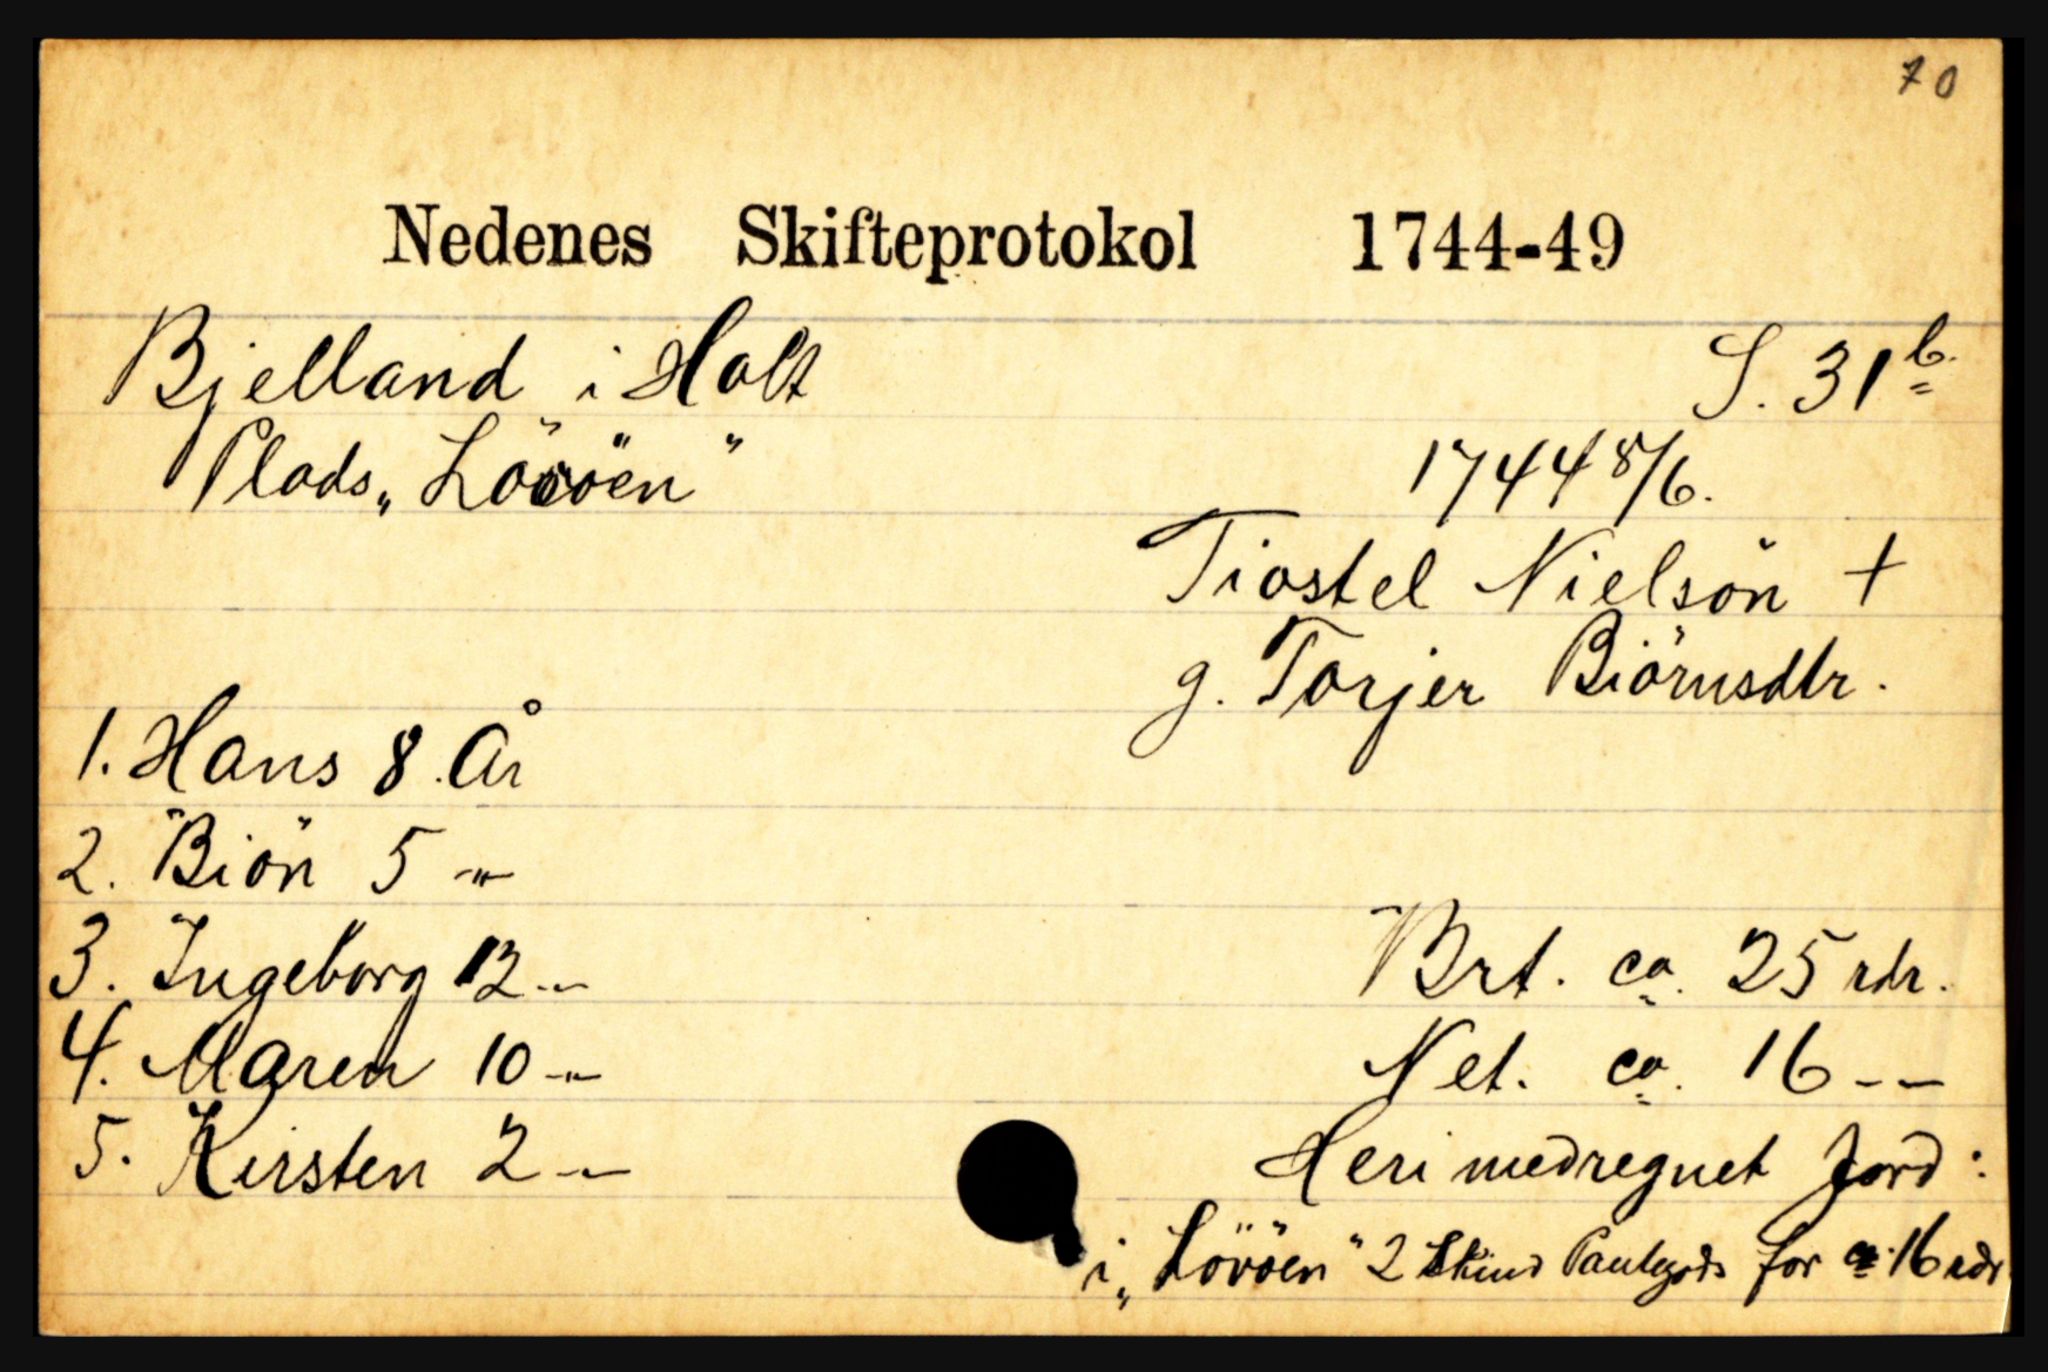 70
Nedenes Skifteprotokol 1744-49
Bjelland i Holt S. 31 b.
Plads „Lövöen" 1744 8/6.
Tiostel Nielsön +
g. Torjer Biörnsdtr.
1. Hans 8 År
2. Biön 5 -"-
3. Ingeborg 12 -"-
4. Maren 10 -"-
5. Kirsten 2 -"-
Brt. ca. 25 rdr.
Net. ca. 16 --
Heri medregnet Jord:
i „Lövöen" 2 Skind Pantegods for ca. 16 rdr